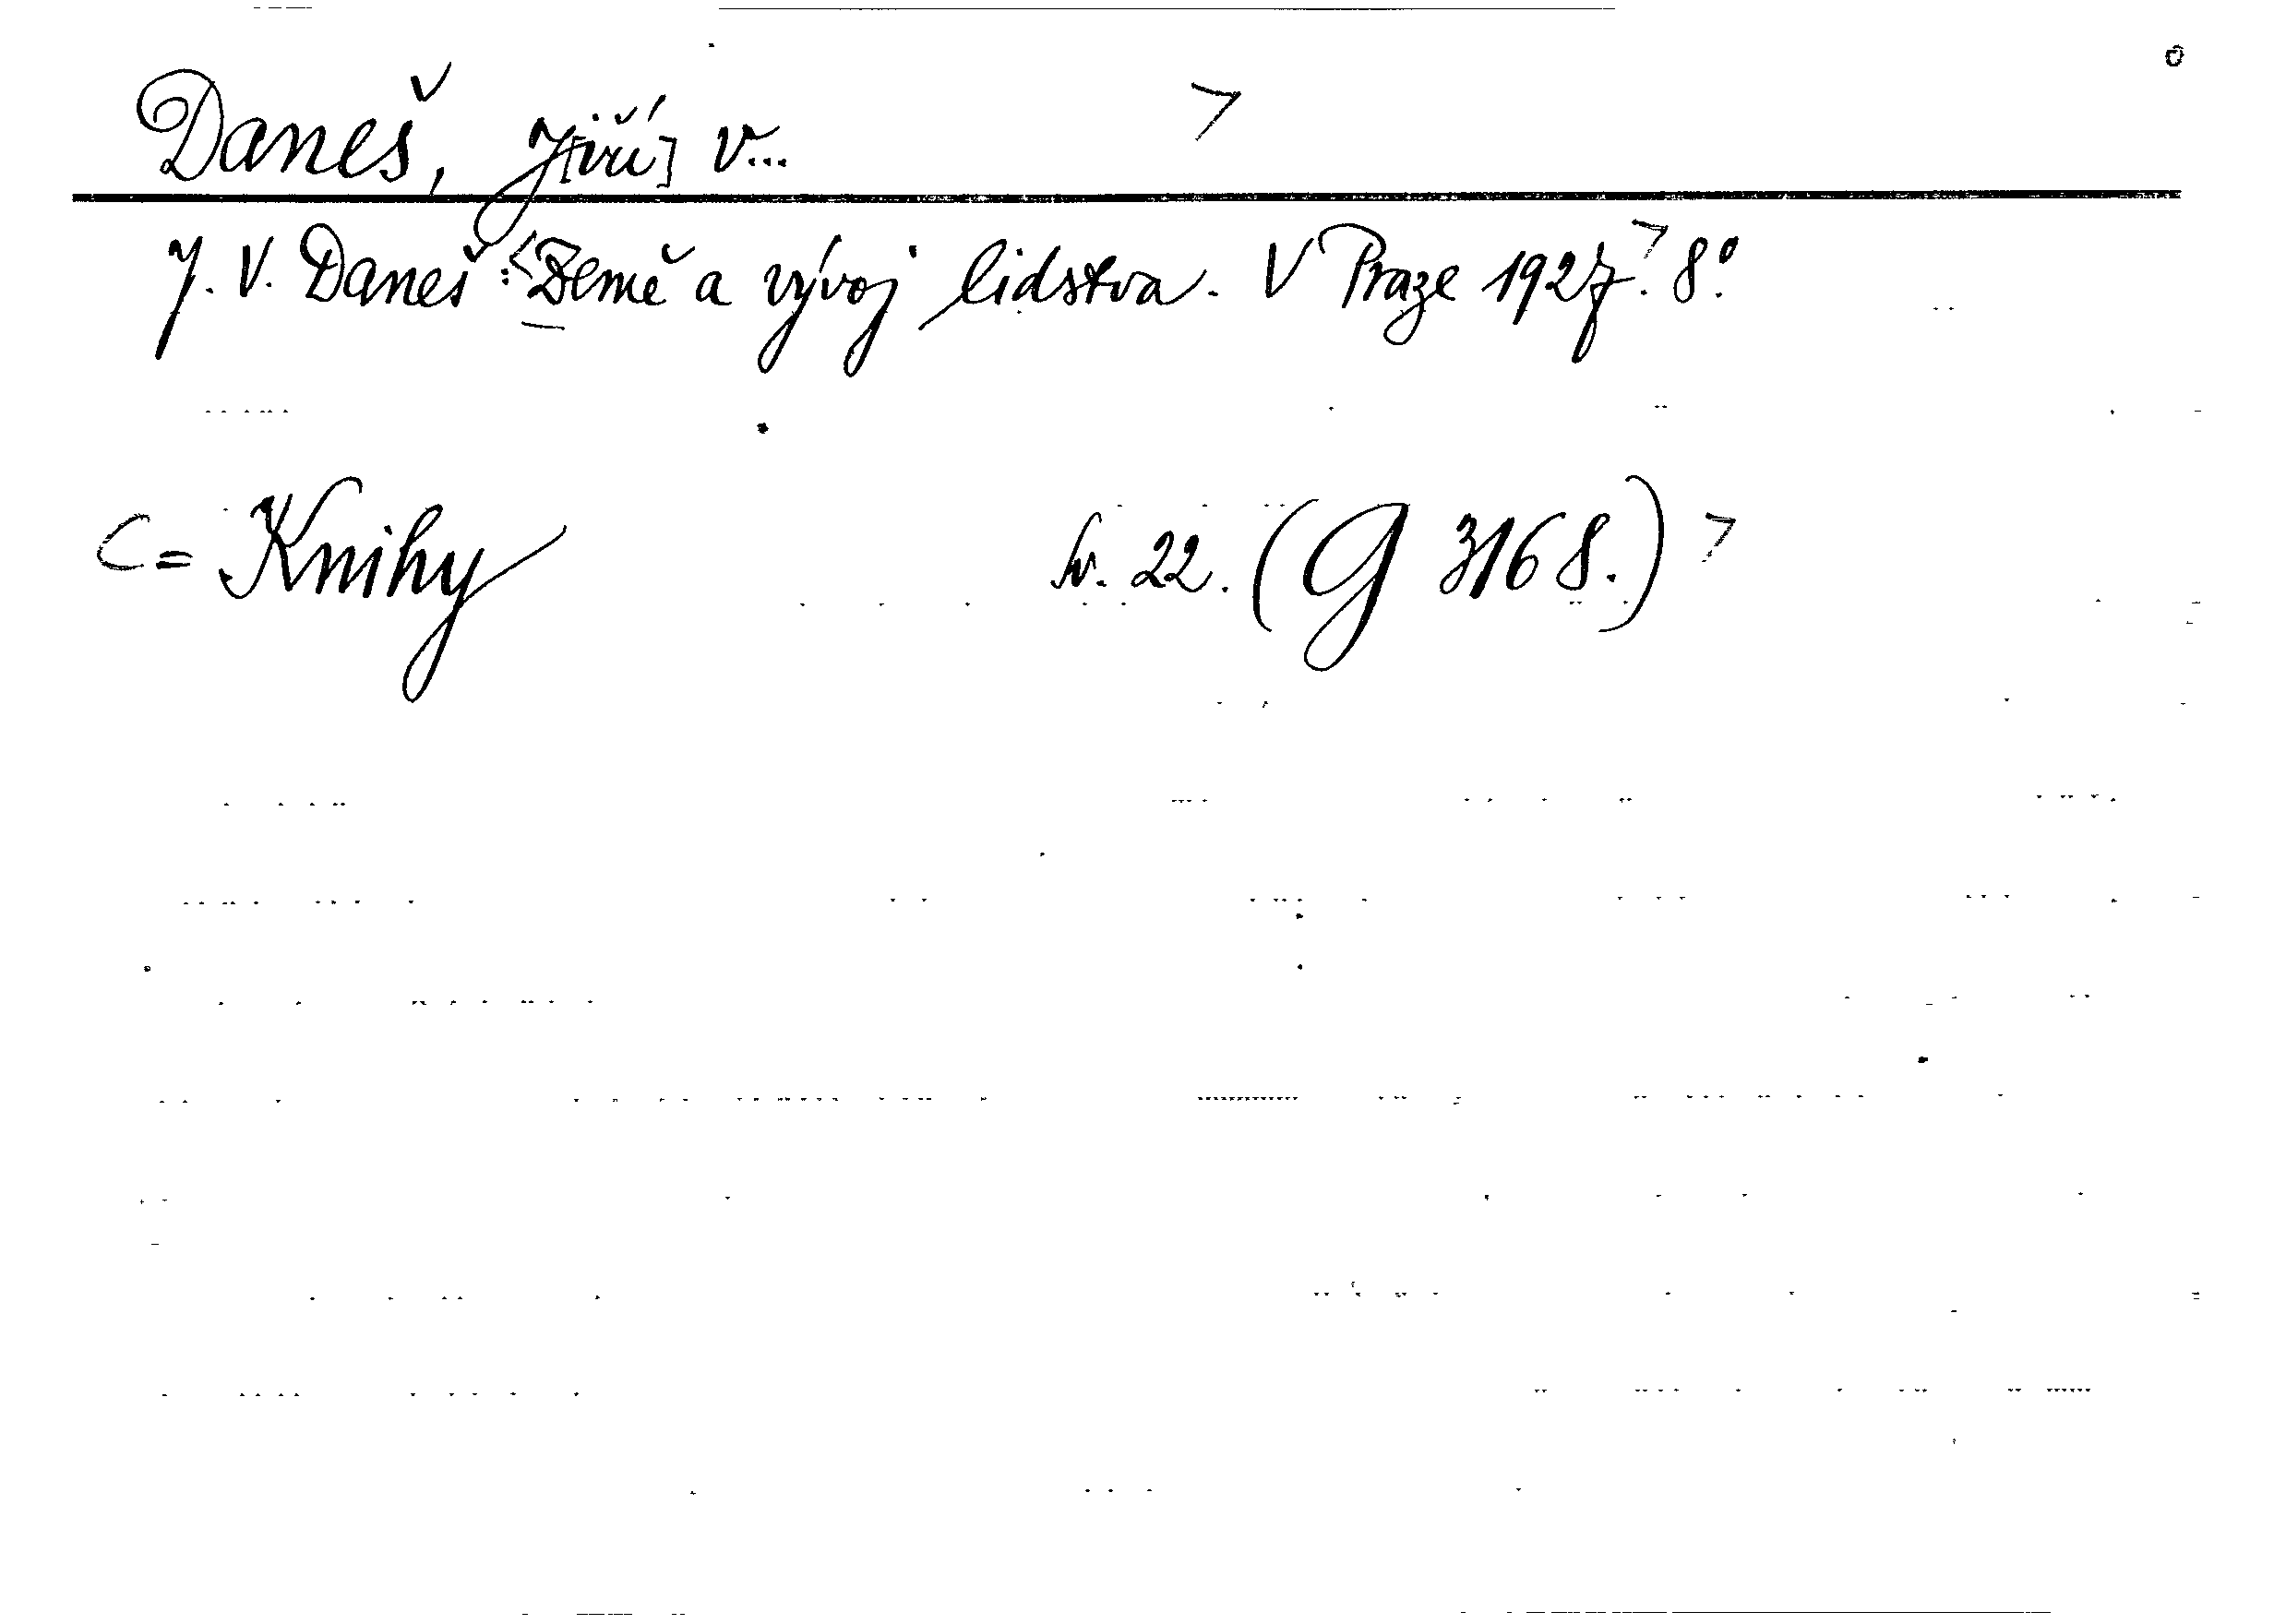 Daneš, J[iří] V...
J. V. Daneš: Země a vývoj lidstva. V Praze 1927. 8°.
C = Knihy sv. 22. (G 3168.)